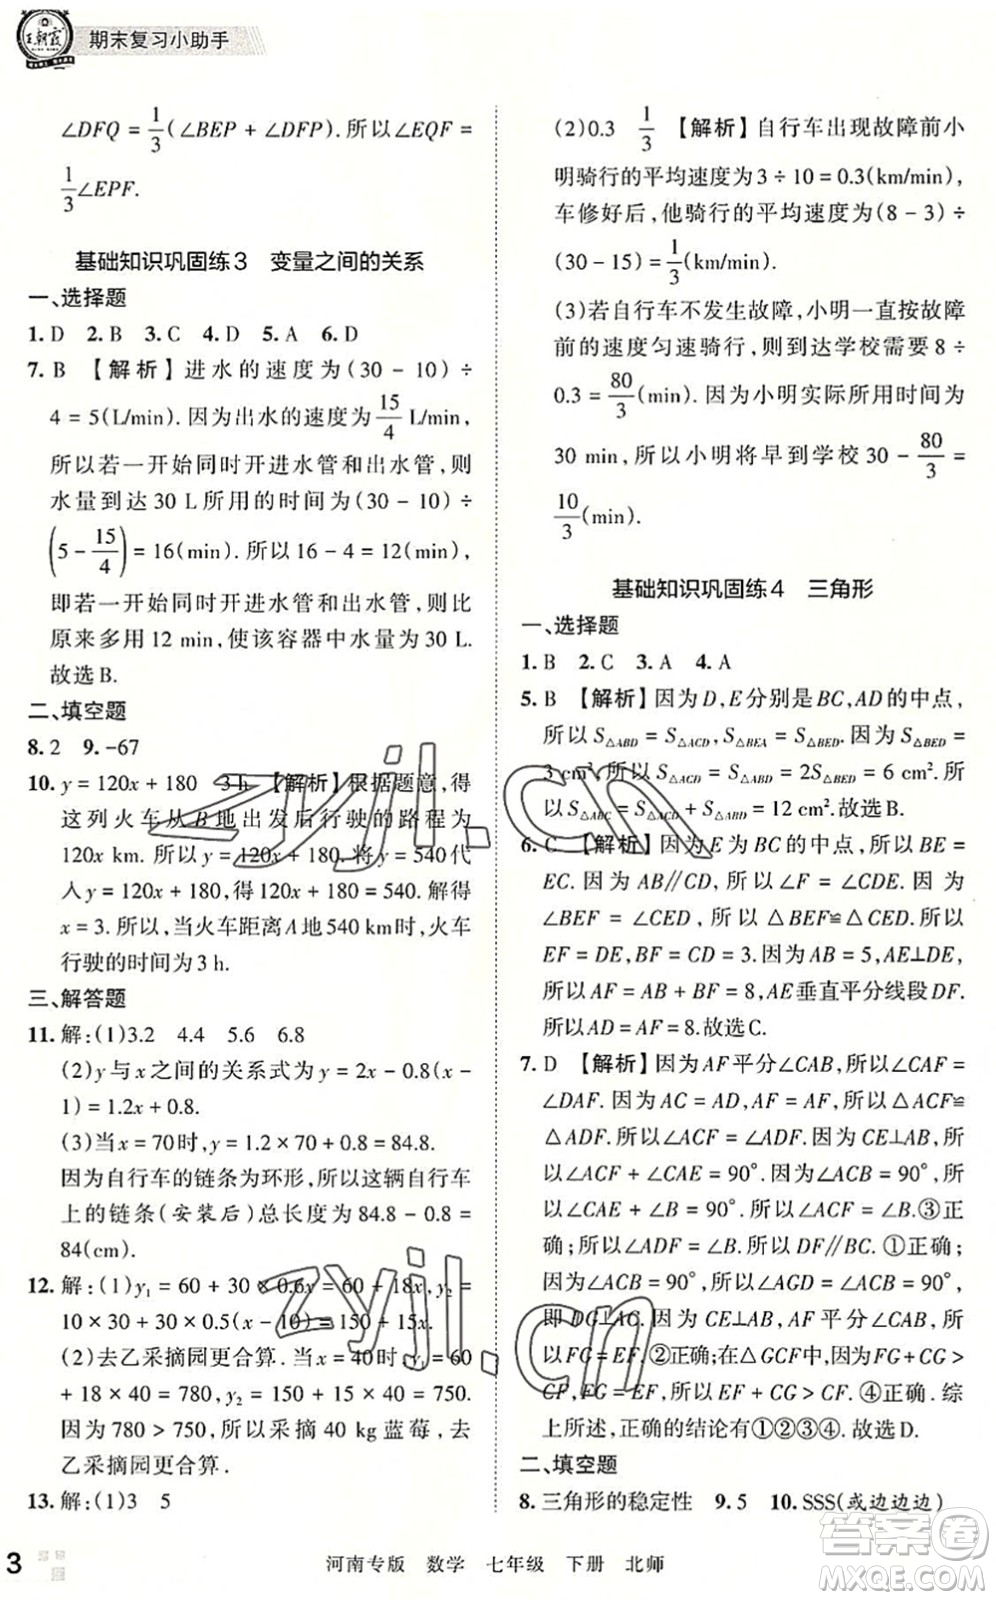 王朝霞
期末复习小助手
∠DFQ = 1/3(∠BEP + ∠DFP).所以∠EQF =
1/3∠EPF.
基础知识巩固练3 变量之间的关系
一、选择题
1. D 2. B 3. C 4. D 5. A 6. D
7. B 【解析】进水的速度为(30 - 10) ÷
4 = 5(L/min).因为出水的速度为15/4 L/min,
所以若一开始同时开进水管和出水管,则
水量到达30 L所用的时间为(30 - 10) ÷
(5 - 15/4) = 16(min).所以16 - 4 = 12(min).
即若一开始同时开进水管和出水管,则比
原来多用12 min,使该容器中水量为30 L.
故选B.
二、填空题
8. 2 9. -67
10. y = 120x + 180 3 h 【解析】根据题意,得
这列火车从B地出发后行驶的路程为
120x km. 所以y = 120x + 180. 将y = 540代
入y = 120x + 180,得120x + 180 = 540. 解得
x = 3. 所以,当火车距离A地540 km时,火车
行驶的时间为3 h.
三、解答题
11. 解:(1)3.2 4.4 5.6 6.8
(2)y与x之间的关系式为y = 2x - 0.8(x -
1) = 1.2x + 0.8.
(3)当x = 70时,y = 1.2 × 70 + 0.8 = 84.8.
因为自行车的链条为环形,所以这辆自行车
上的链条(安装后)总长度为84.8 - 0.8 =
84(cm).
12. 解:(1)y₁ = 60 + 30 × 0.6x = 60 + 18x,y₂ =
10 × 30 + 30 × 0.5(x - 10) = 150 + 15x.
(2)去乙采摘园更合算. 当x = 40时,y₁ = 60
+ 18 × 40 = 780,y₂ = 150 + 15 × 40 = 750.
因为780 > 750,所以采摘40 kg蓝莓,去
乙采摘园更合算.
13. 解:(1)3 5
(2)0.3 1/3 【解析】自行车出现故障前小
明骑行的平均速度为3 ÷ 10 = 0.3(km/min),
车修好后,他骑行的平均速度为(8 - 3) ÷
(30 - 15) = 1/3(km/min).
(3)若自行车不发生故障,小明一直按故障
前的速度匀速骑行,则到达学校需要8 ÷
0.3 = 80/3(min). 因为小明实际所用时间为
30 min,所以小明将早到学校30 - 80/3 =
10/3(min).
基础知识巩固练4 三角形
一、选择题
1. B 2. C 3. A 4. A
5. B 【解析】因为D,E分别是BC,AD的中点,
所以S△ABD = S△ACD,S△BEA = S△BED =
3 cm². 所以S△ACD = S△ABD = 2S△BED = 6 cm². 所
以S△ABC = S△ACD + S△ABD = 12 cm².故选B.
6. C 【解析】因为E为BC的中点,所以BE =
EC. 因为AB∥CD,所以∠F = ∠CDE. 因为
∠BEF = ∠CED,所以△BEF≌△CED. 所以
EF = DE,BF = CD = 3. 因为AB = 5,AE⊥DE,
所以AF = AB + BF = 8,AE垂直平分线段DF.
所以AD = AF = 8.故选C.
7. D 【解析】因为AF平分∠CAB,所以∠CAF =
∠DAF. 因为AC = AD,AF = AF,所以△ACF≌
△ADF. 所以∠ACF = ∠ADF. 因为CE⊥AB,
所以∠ACF + ∠CAE = 90°. 因为∠ACB = 90°,
所以∠CAE + ∠B = 90°. 所以∠ACF = ∠B.③正
确. 所以∠ADF = ∠B. 所以DF∥BC. ①正确;
因为∠ACB = 90°,所以∠AGD = ∠ACB = 90°,
即DG⊥AC. 因为CE⊥AB,AF平分∠CAB,所
以FG = FE. ②正确;在△GCF中,CF + FG >
CG,所以CF + EF > CG. 即EF + CG > CF. ④正确. 综
上所述,正确的结论有①②③④.故选D.
二、填空题
8. 三角形的稳定性 9. 5 10. SSS(或边边边)
3 河南专版 数学 七年级 下册 北师
zyjl.cn
zyjl.cn
答案圈
MXQE.COM